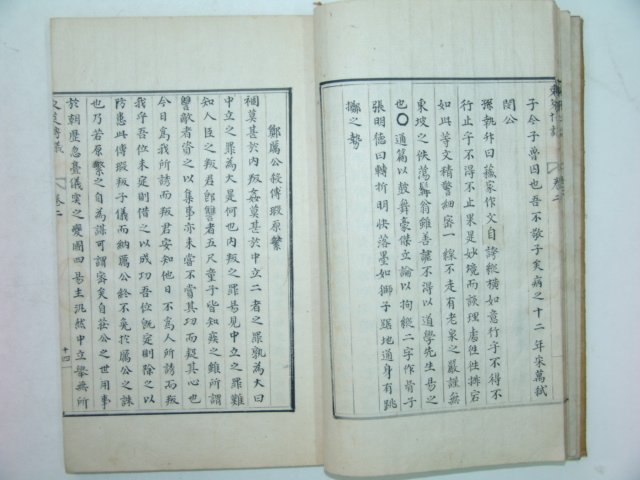 子今子魯囚也吾不敬子矣病之十二年宋萬弒
閔公
孫執升曰蘓家作文自誇縱橫如意行乎不得不
行止乎不得不止果是妙境而談理處往往排宕
如此等文精警細密一線不走有老泉之嚴謹無
東坡之佚蕩髯翁雖善謔不得以道學先生易之
也○通篇以鼓舞豪傑立論以拘縱二字作骨子
張明德曰轉折明快落墨如獅子踞地通身有跳
擲之勢
鄭厲公殺傅瑕原繁
禍莫甚於內叛姦莫甚於中立二者之罪孰為大曰
中立之罪為大是何也內叛之罪易見中立之罪難
知人臣之叛君即讐者五尺童子皆知疾之雖所謂
讐敵者資之以集事亦未嘗不賞其功而疑其心也
今日為我所誘而叛君安知他日不為人所誘而叛
我乎吾位未定則借之以成功吾位既定則除之以
防患此傅瑕叛子儀而納厲公終不免於厲公之誅
也乃若原繁之自為謀可謂密矣自莊公之世用事
於朝歷忽亹儀突之變國四易主汎然中立舉無所
卷二
十四